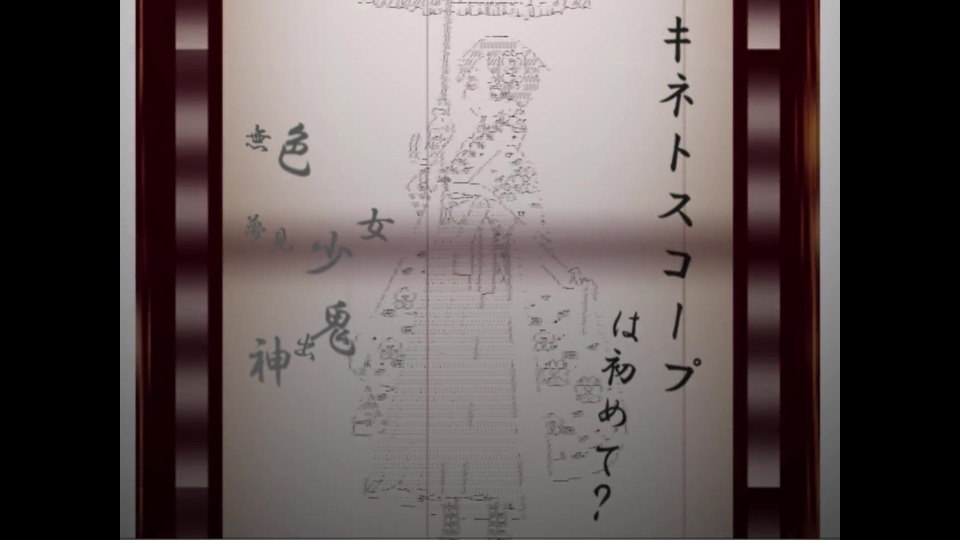 キネトスコープ
は初めて?
女
少
鬼
出
色
見
無
夢
神